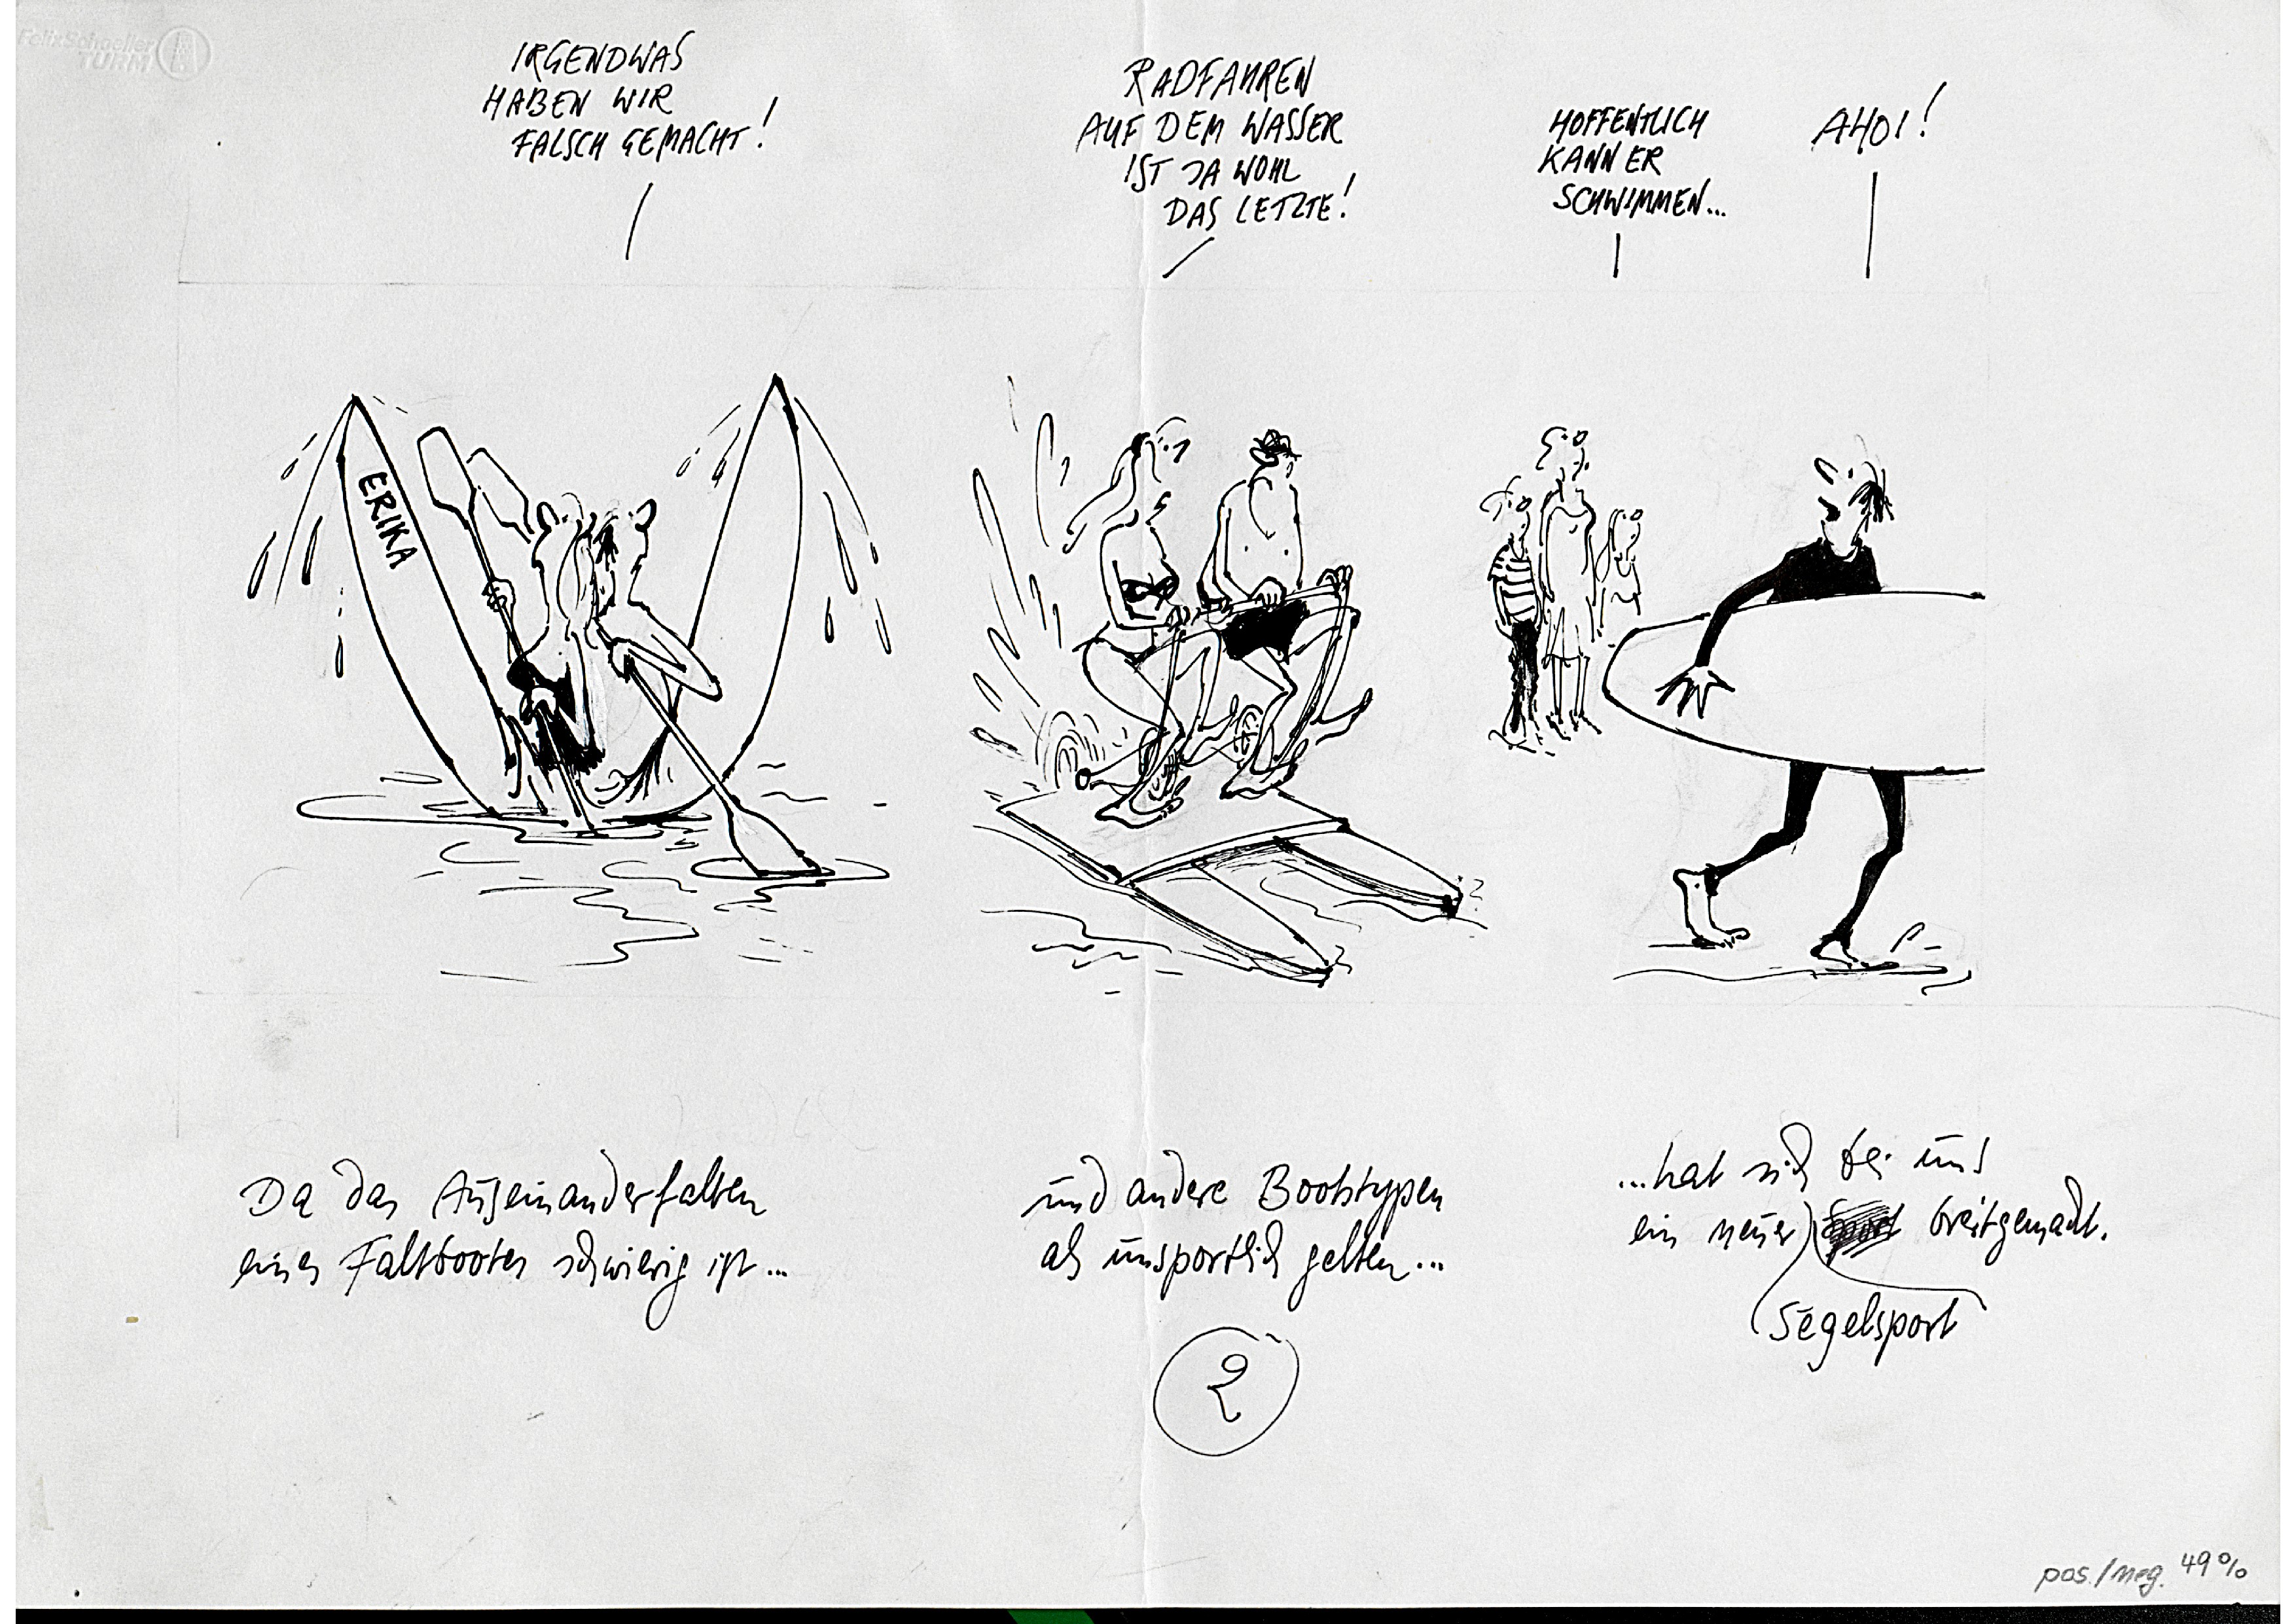 Felix Schoeller
TURM
IRGENDWAS
HABEN WIR
FALSCH GEMACHT!
RADFAHREN
AUF DEM WASSER
IST JA WOHL
DAS LETZTE!
HOFFENTLICH
KANN ER
SCHWIMMEN...
AHOI!
ERIKA
Da das Auseinanderfalten
eines Faltbootes schwierig ist...
und andere Bootstypen
als unsportlich gelten...
...hat sich bei uns
ein neuer breitgemacht.
Segelsport
2
pos./neg. 49%